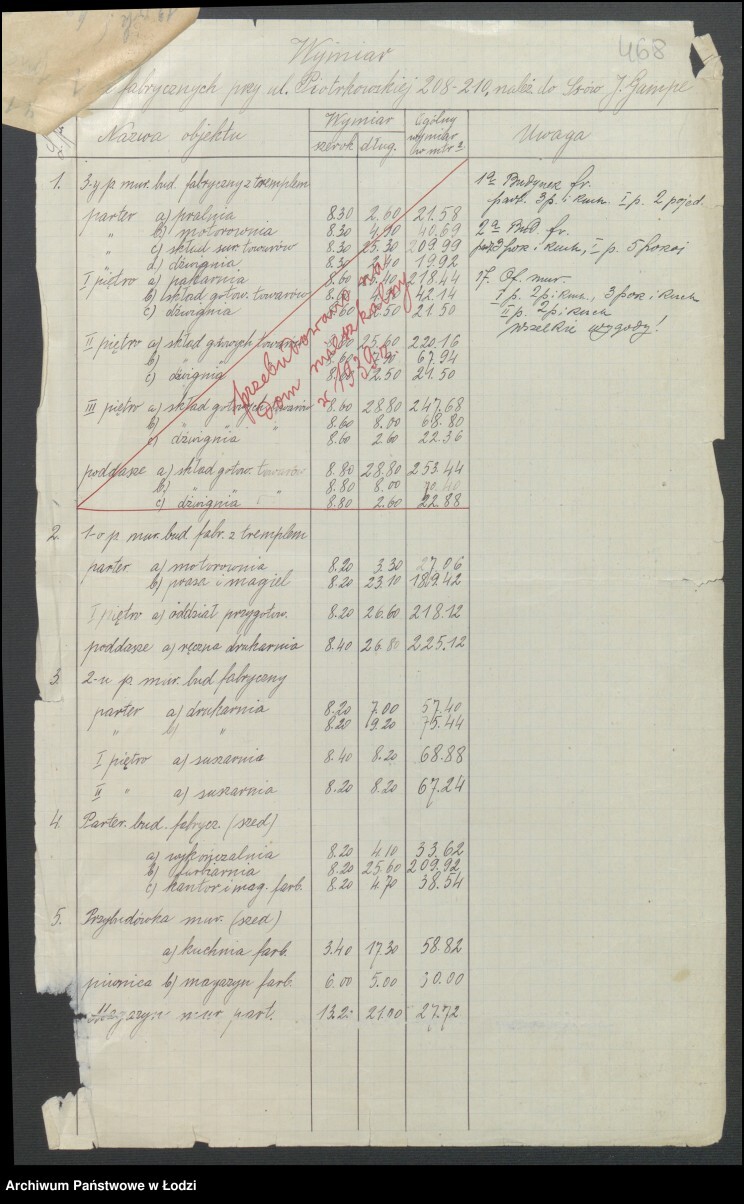 468
Wymiar
fabrycznych przy ul. Piotrkowskiej 208-210, należ. do Ss-ów J. Gampe
Nazwa objektu Wymiar Ogólny wymiar w mtr² Uwaga
szerok. dług.
1. 3-y p. mur. bud. fabryczny z tremplem
parter a) pralnia 8.30 2.60 21.58
" b) motorownia 8.30 4.90 40.69
" c) skład sur. towarów 8.30 25.30 209.99
" d) dźwignia 8.30 2.40 19.92
I piętro a) pakarnia 218.44
b) skład gotow. towarów 42.14
c) dźwignia 8.60 2.50 21.50
II piętro a) skład gotowych towarów 8.60 25.60 220.16
b) " " 8.60 67.94
c) dźwignia 8.60 2.50 21.50
III piętro a) skład gotowych towarów 8.60 28.80 247.68
b) " " 8.60 8.00 68.80
c) dźwignia " 8.60 2.60 22.36
poddasze a) skład gotow. towarów 8.80 28.80 253.44
b) " " 8.80 8.00 70.40
c) dźwignia " 8.80 2.60 22.88
przebudowano na
dom mieszkalny
w 1939 r.
2. 1-o p. mur. bud. fabr. z tremplem
parter a) motorownia 8.20 3.30 27.06
b) prasa i magiel 8.20 23.10 189.42
I piętro a) oddział przygotow. 8.20 26.60 218.12
poddasze a) ręczna drukarnia 8.40 26.80 225.12
3. 2-u p. mur. bud. fabryczny
parter a) drukarnia 8.20 7.00 57.40
" b) " 8.20 9.20 75.44
I piętro a) suszarnia 8.40 8.20 68.88
II " a) suszarnia 8.20 8.20 67.24
4. Parter. bud. fabrycz. (szed)
a) wykończalnia 8.20 4.10 33.62
b) farbiarnia 8.20 25.60 209.92
c) kantor i mag. farb. 8.20 4.70 38.54
5. Przybudówka mur. (szed)
a) kuchnia farb. 3.40 17.30 58.82
piwnica b) magazyn farb. 6.00 5.00 30.00
Magazyn mur. part. 13.2 27.72
1) Budynek fr.
part. 3 p. i kuch. I p. 2 pojed.
2) Bud. fr.
3 pok i kuch, I p. 5 pokoi
Of. mur.
I p. 2 p i kuch., 3 pok i kuch
II p. 2 p i kuch
wszelkie wygody!
Archiwum Państwowe w Łodzi